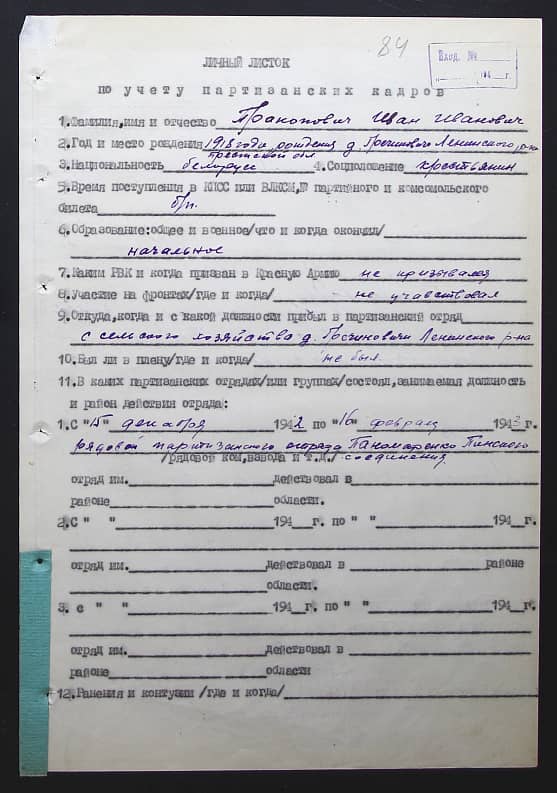 84
Вход. №
194 г.
ЛИЧНЫЙ ЛИСТОК
по учету партизанских кадров
1.Фамилия,имя и отчество Пракопович Иван Иванович
2.Год и место рождения 1918 года рождения д. Гричиновичи Ленинского р-на
Брестской обл
3.Национальность белорус 4.Соцположение крестьянин
5.Время поступления в КПСС или ВЛКСМ,№ партийного и комсомольского
билета б/п.
6.Образование:общее и военное/что и когда окончил/
начальное
7.Каким РВК и когда призван в Красную Армию не призывался
8.Участие на фронтах/где и когда/ не учавствовал
9.Откуда,когда и с какой должности прибыл в партизанский отряд
с сельского хозяйства д. Гричиновичи Ленинского р-на
10.Был ли в плену/где и когда/ не был.
11.В каких партизанских отрядах/или группах/состоял,занимаемая должность
и район действия отряда:
1.С "15" декабря 1942 по "16" февраля 1943 г.
рядовой партизанского отряда Панамаренко Пинского
/рядовой ком,взвода и т.д./ соединения.
отряд им. действовал в
районе области.
2.С " " 194 г. по " " 194 г.
отряд им. действовал в районе
области.
3. с " " 194 г. по " " 194 г.
отряд им. действовал в
районе области
12.Ранения и контузии /где и когда/